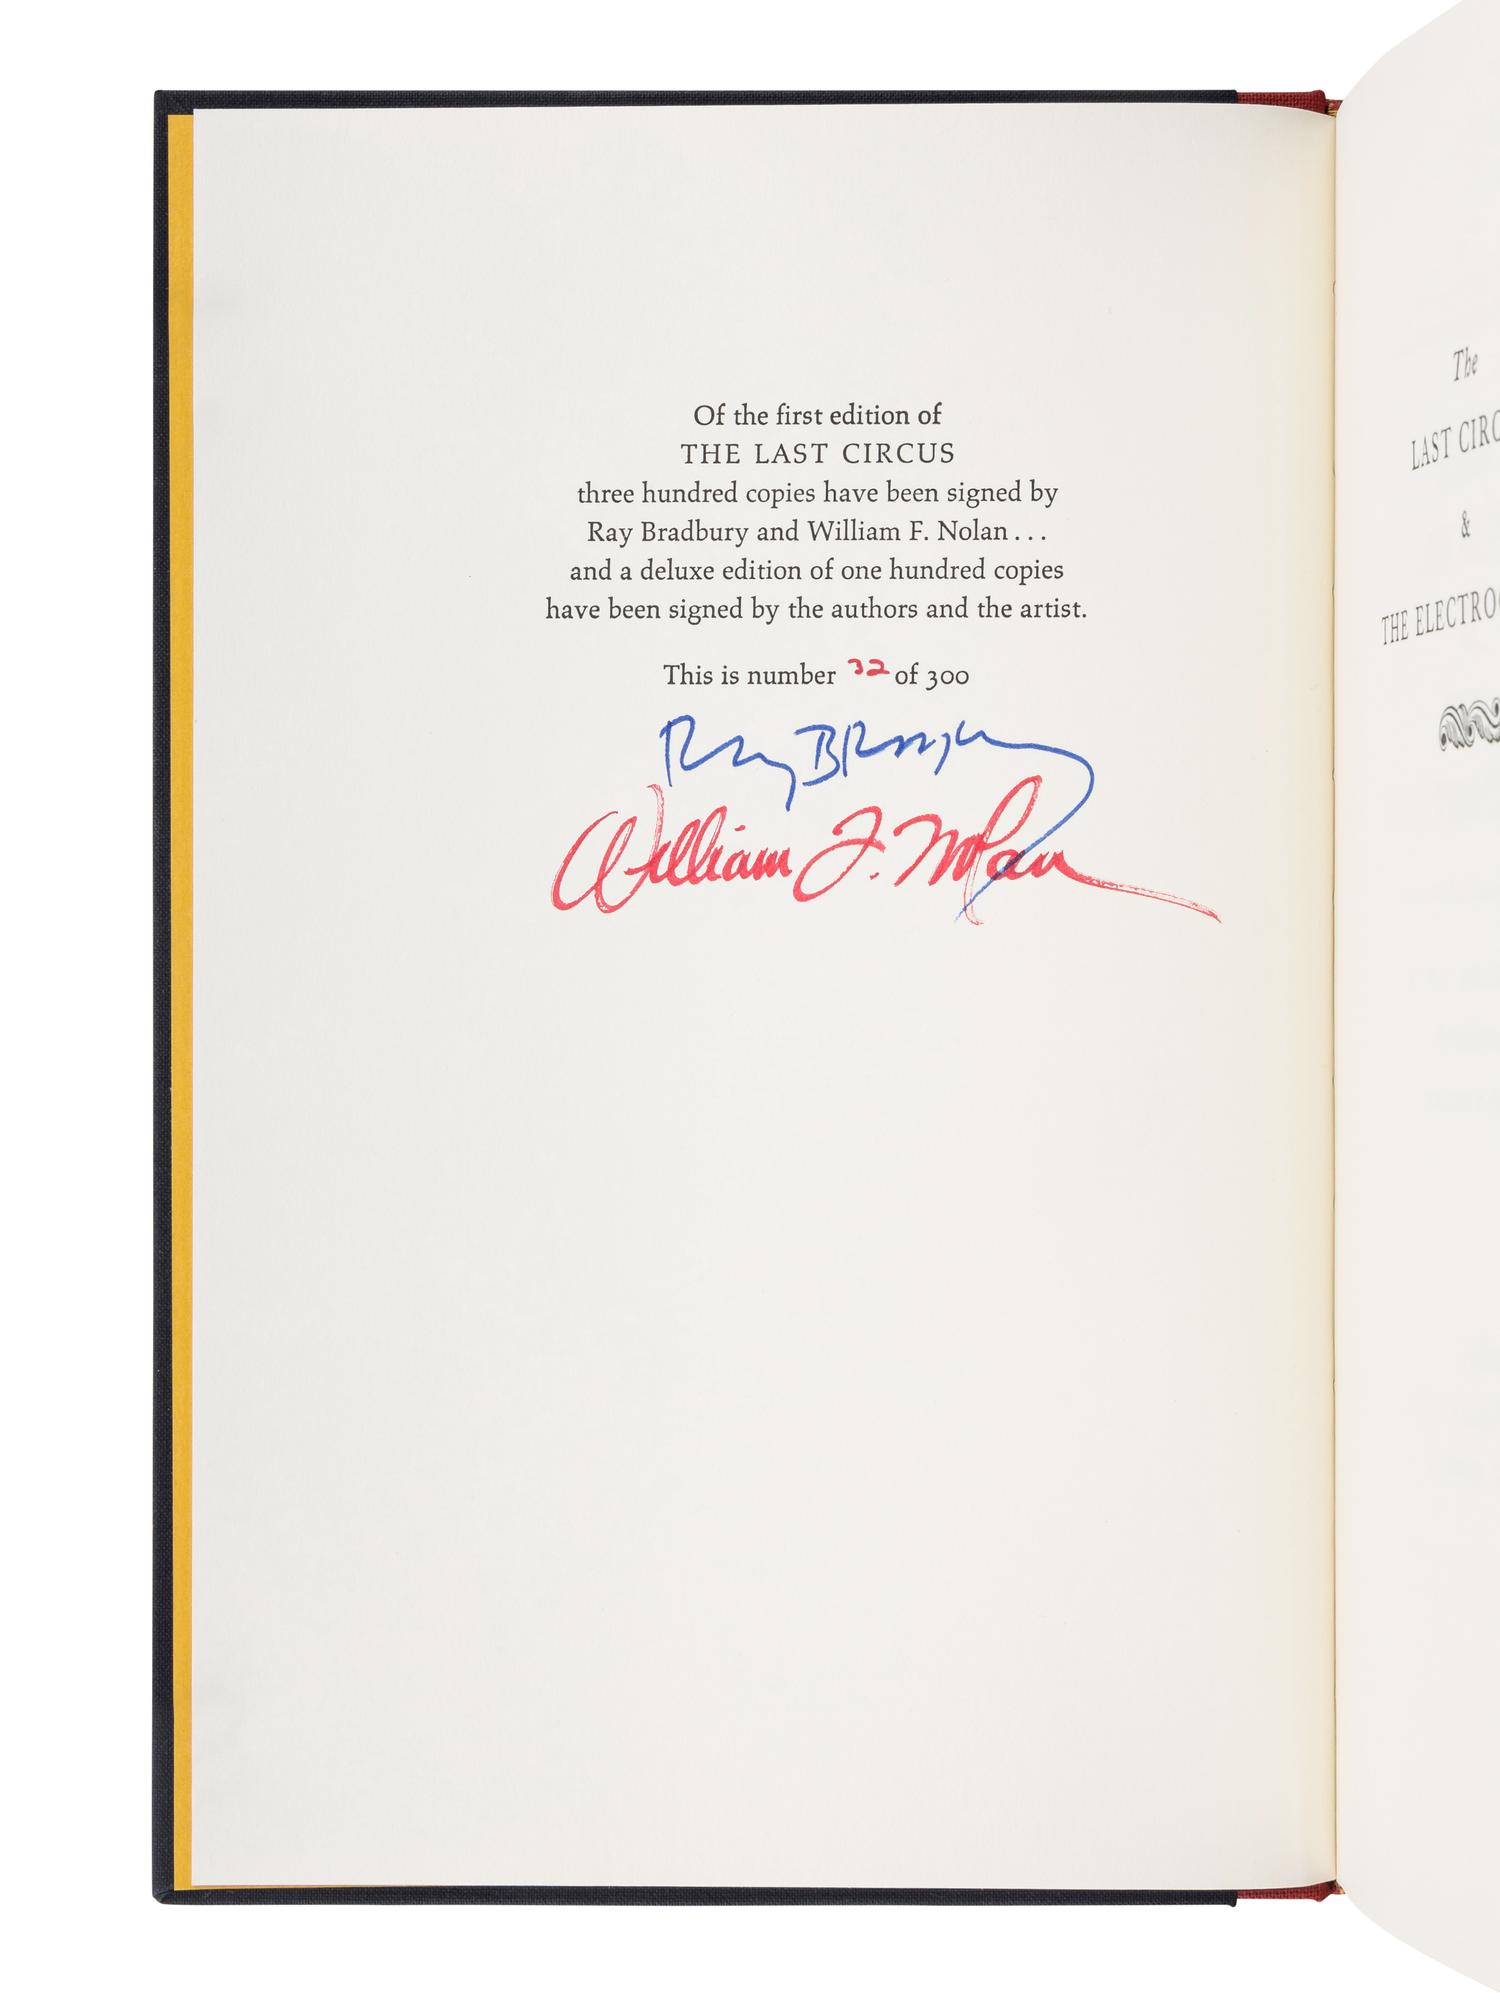 Of the first edition of
THE LAST CIRCUS
three hundred copies have been signed by
Ray Bradbury and William F. Nolan...
and a deluxe edition of one hundred copies
have been signed by the authors and the artist.
This is number 32 of 300
Ray Bradbury
William F. Nolan
The
LAST CIRC
&
THE ELECTROC